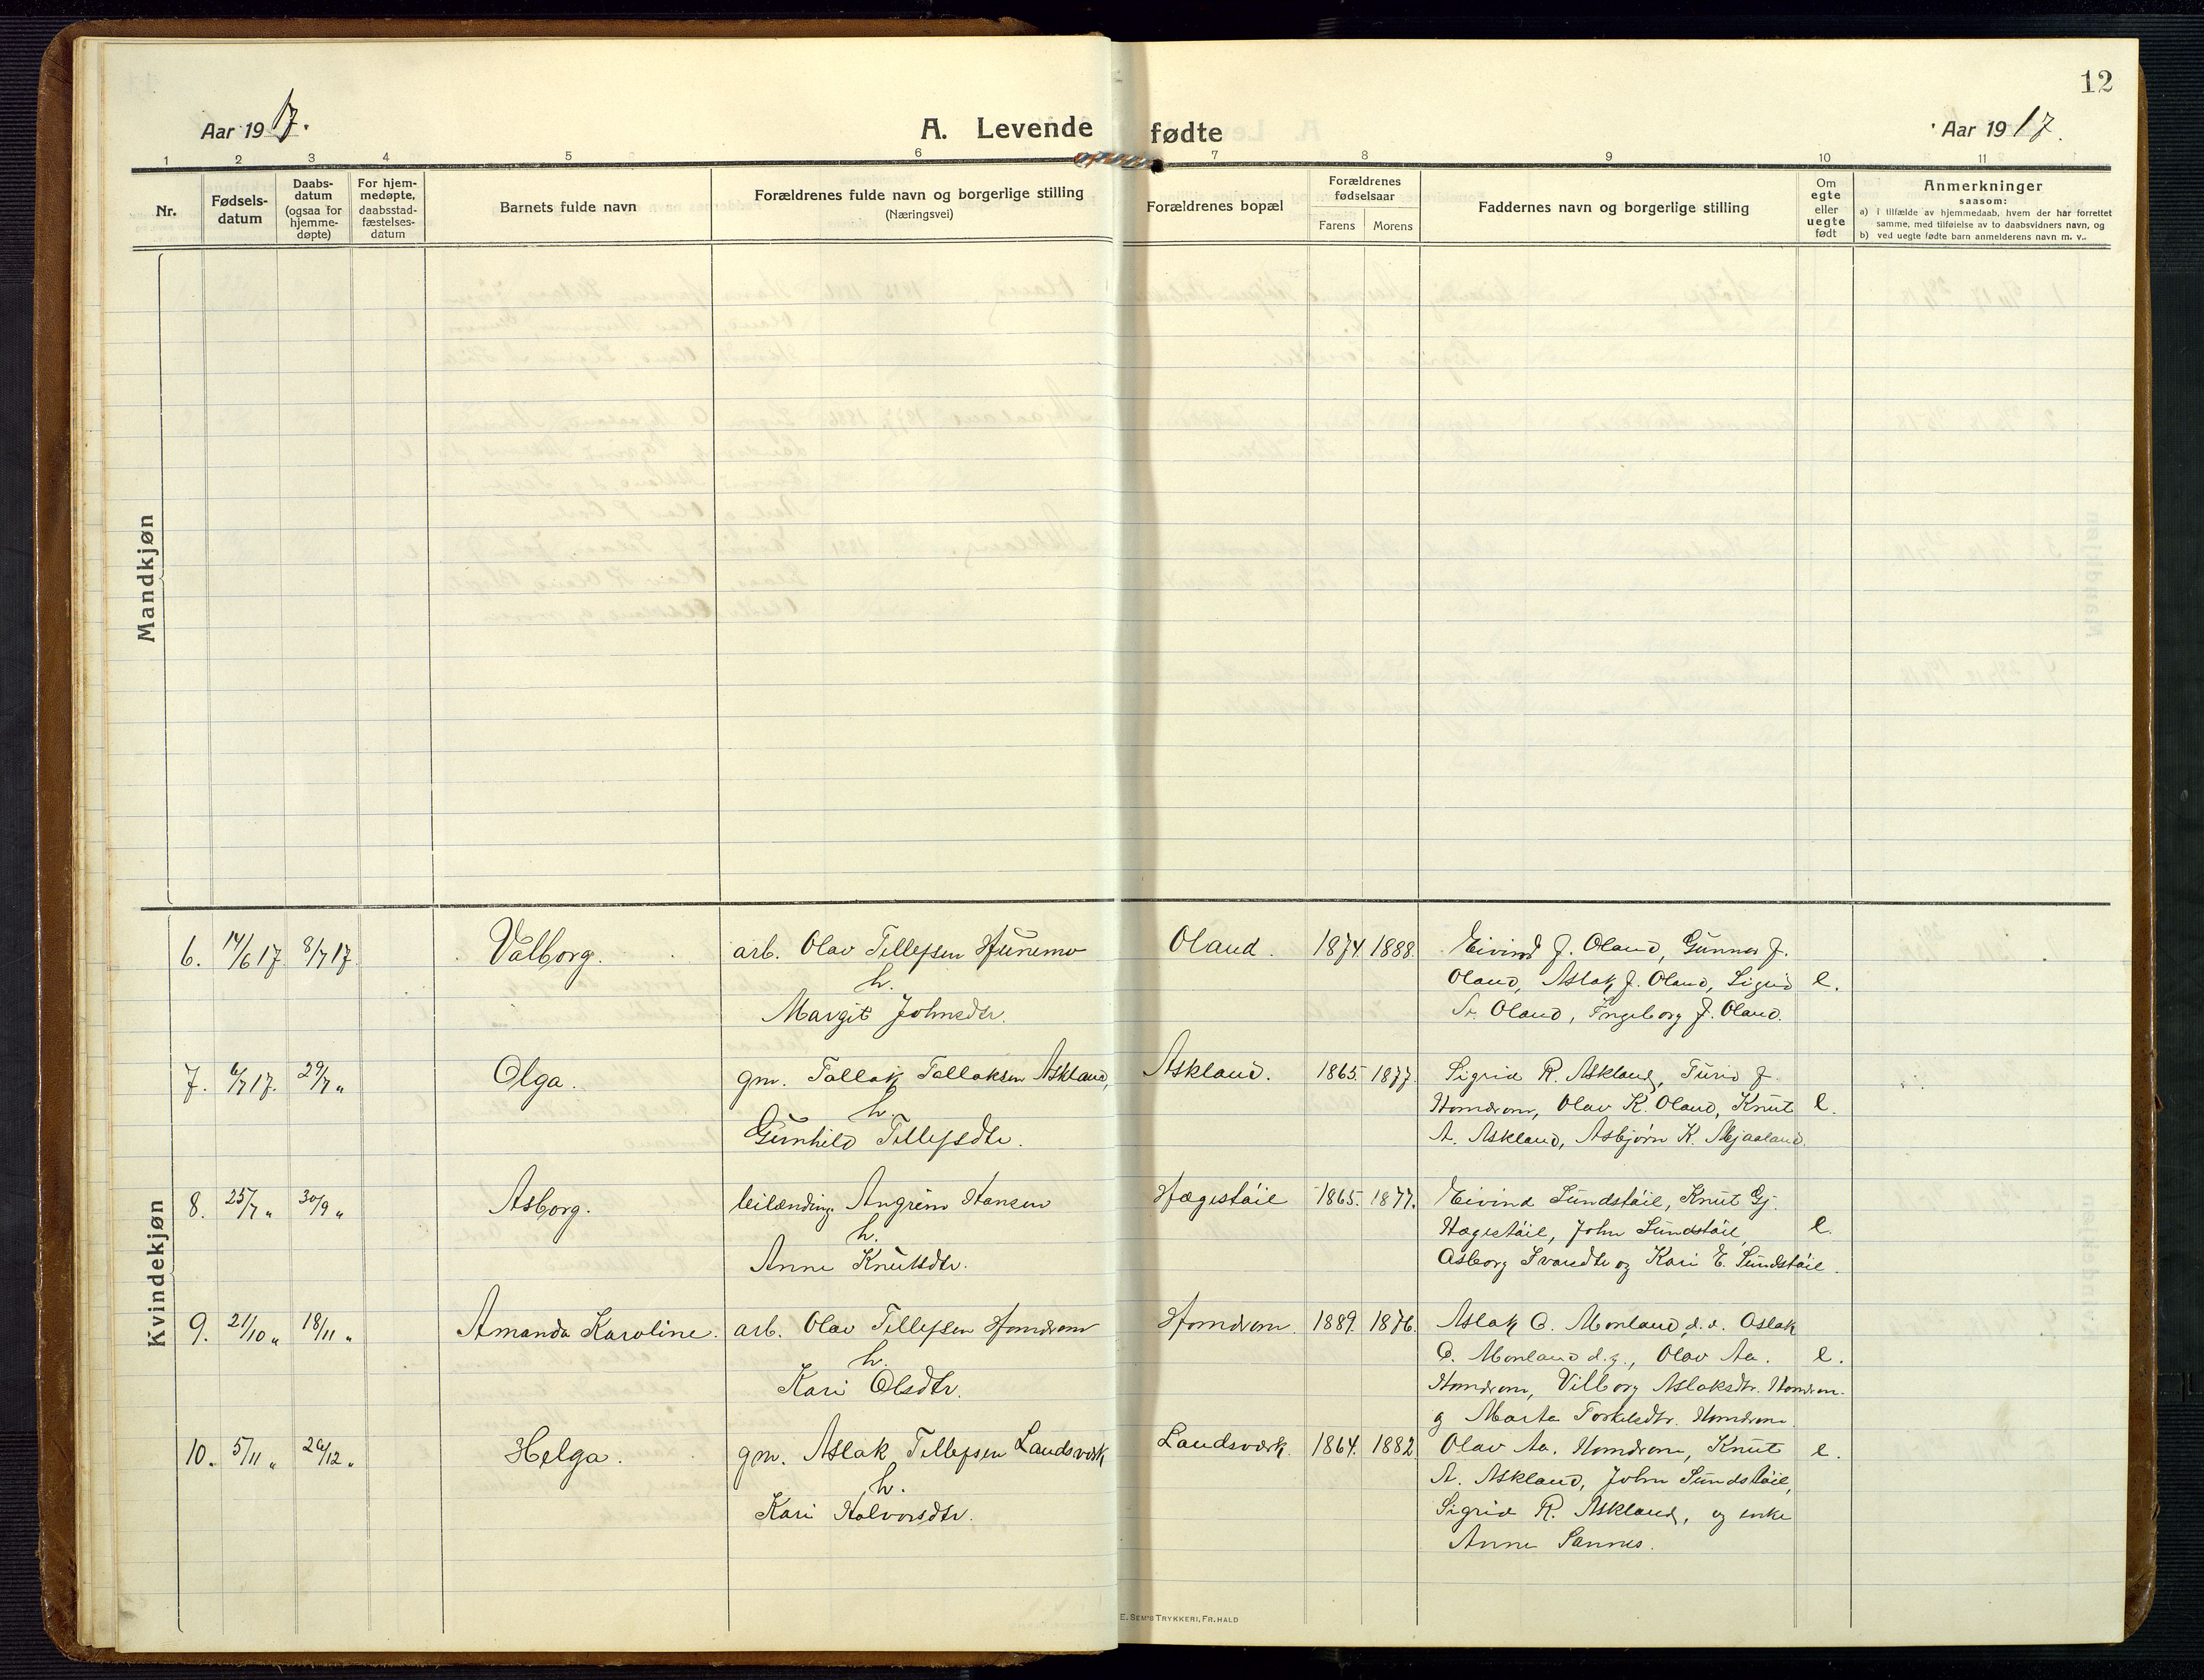 12
Aar 1917.
A. Levende fødte
Aar 1917.
1 2 3 4 5 6 7 8 9 10 11
Nr.
Fødsels-
datum
Daabs-
datum
(ogsaa for
hjemme-
døpte)
For hjem-
medøpte,
daabsstad-
fæstelses-
datum
Barnets fulde navn
Forældrenes fulde navn og borgerlige stilling
(Næringsvei)
Forældrenes bopæl
Forældrenes
fødselsaar
Farens Morens
Faddernes navn og borgerlige stilling
Om
egte
eller
uegte
født
Anmerkninger
saasom:
a) i tilfælde av hjemmedaab, hvem der har forrettet
samme, med tilføielse av to daabsvidners navn, og
b) ved uegte fødte barn anmelderens navn m. v..
Mandkjøn
Kvindekjøn
6. 14/6 17. 8/7 17. Valborg. arb. Olav Tellefsen Hunemo Oland. 1874. 1888. Eivind J. Oland, Gunner J.
h. Oland, Aslak J. Oland, Sigrid e.
Margit Johnsdtr. Oland, Ingeborg J. Oland.
7. 6/7 17. 29/7 " Olga. gm. Tallak Tallaksen Askland, Askland. 1865. 1877. Sigrid R. Askland, Turid J.
h. Homdrom, Olav K. Oland, Knut e.
Gunhild Tellefsdtr. A. Askland, Asbjørn K. Mjaaland.
8. 25/7 " 30/9 " Asborg. leilænding. Angrim Hansen Hægestøil 1865. 1877. Eivind Sundstøil, Knut Gj.
h. Hægestøil, John Sundstøil, e.
Anne Knutsdtr. Asborg Ivarsdtr og Kari E. Sundstøil.
9. 21/10 " 18/11 " Amanda Karoline. arb. Olav Tellefsen Homdrom Homdrom. 1889. 1876. Aslak O. Monland, d. e. Aslak
h. O. Monland d. y., Olav Aa. e.
Kari Olsdtr. Homdrom, Vilborg Aslaksdtr. Homdrom.
g Marte Torkelsdtr. Homdrom.
10. 5/11 " 26/12 " Helga. gm. Aslak Tellefsen Landsværk Landsværk. 1864. 1882 Olav Aa. Homdrom, Knut e.
h. A. Askland, John Sundstøil,
Kari Halvorsdtr. Sigrid R. Askland, og enke
Anne Sannes.
E. SEM'S TRYKKERI, FR. HALD